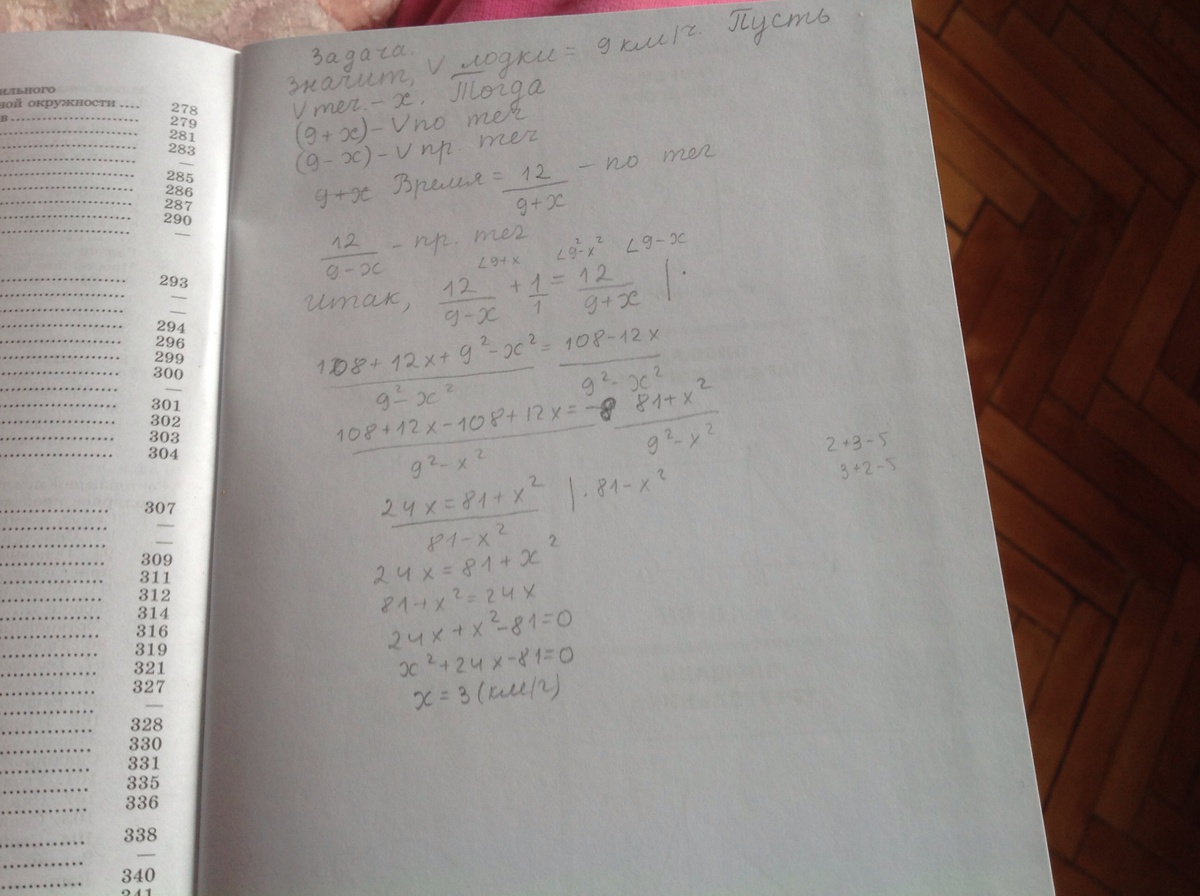 ильного
ной окружности .... 278
в ........ 279
281
283
—
285
286
287
290
—
293
—
—
294
296
299
300
—
301
302
303
304
307
—
—
309
311
312
314
316
319
321
327
—
328
330
331
335
336
338
—
340
341
Задача.
Значит, V лодки = 9 км/ч. Пусть
V теч. – x. Тогда
(9+x) – V по теч
(9–x) – V пр. теч
9+x Время = 12/(9+x) – по теч
12/(9–x) – пр. теч
∠9+x ∠9²–x² ∠9–x
итак, 12/(9–x) + 1/1 = 12/(9+x) | ·
(108+12x+9²–x²)/(9²–x²) = (108–12x)/(9²–x²)
(108+12x–108+12x)/(9²–x²) = (81+x²)/(9²–x²)
(24x=81+x²)/(81–x²) | · 81–x²
24x=81+x²
81+x²=24x
24x+x²–81=0
x²+24x–81=0
x=3 (км/ч)
2+3–5
3+2–5